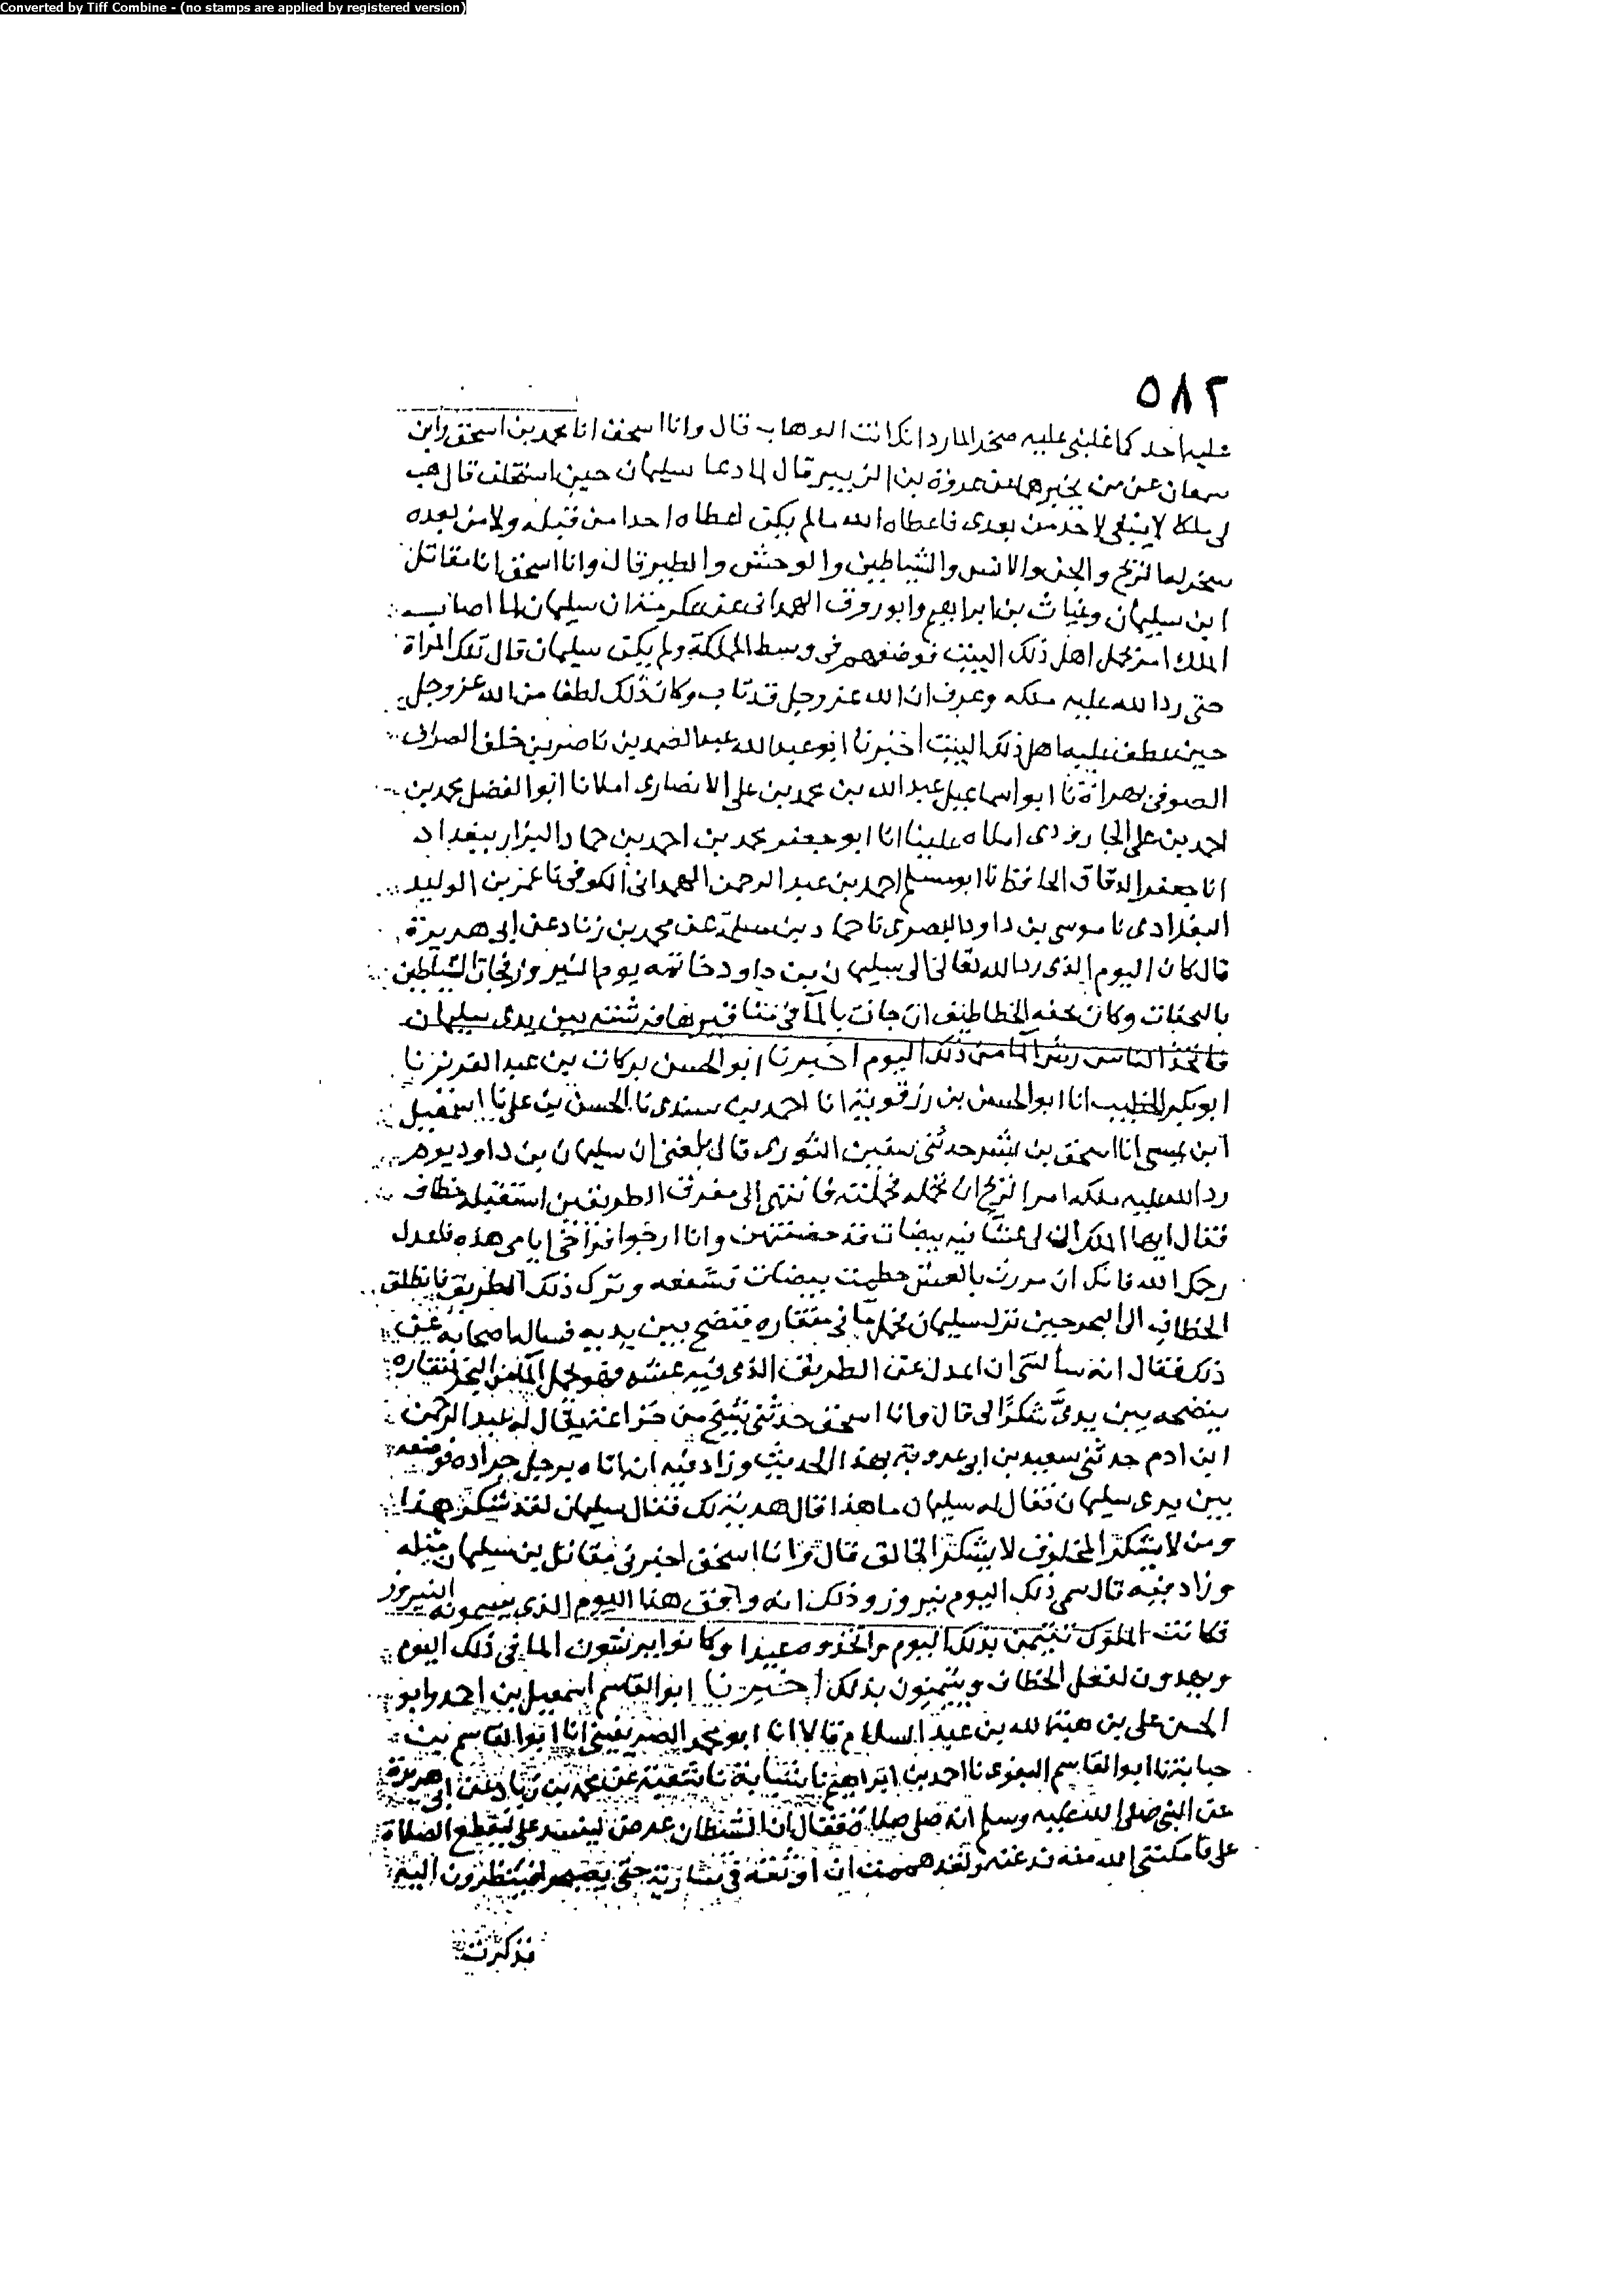 Converted by Tiff Combine - (no stamps are applied by registered version)
٥٨٢
عليه احد كما غلبني عليه صخر المارد انك انت الوهاب قال وانا اسحق انا محمد بن اسحق وابن
سمعان عن من يخبرهما عن عروة بن الزبير قال لما دعا سليمان حين استخلف قال هب
لي ملكا لا ينبغي لاحد من بعدي فاعطاه الله مالم يكن اعطاه احدا من قبله ولا من بعده
سخر له الريح والجن والانس والشياطين والوحش والطير قال وانا اسحق انا مقاتل
ابن سليمان وغياث بن ابراهيم وابو روق الهمداني عن عكرمة ان سليمان لما اصاب
الملك استرجل اهل ذلك البيت فوضعهم في وسط المملكة ولم يكن سليمان قال تلك المراة
حتى رد الله عليه ملكه وعرف ان الله عز وجل قد تاب وكان ذلك لطفا من الله عز وجل
حين عطف عليه اهل ذلك البيت اخبرنا ابو عبد الله عبد الصمد بن ناصر بن خلف الصراف
الصوفي بهراة نا ابو اسماعيل عبد الله بن محمد بن علي الانصاري املانا ابو الفضل محمد بن
احمد بن علي الجارودي املاه علينا انا ابو جعفر محمد بن احمد بن حماد البزار ببغداد
انا جعفر الدقاق الحافظ نا ابو مسلم احمد بن عبد الرحمن الهمداني الكوفي نا عمر بن الوليد
البغدادي نا موسى بن داود البصري نا حماد بن سلمة عن محمد بن زياد عن ابي هريرة
قال كان اليوم الذي رد الله تعالى الى سليمان بن داود خاتمه يوم النيروز فجات الشياطين
بالتحفات وكان تحفه الخطاطيف ان جات بالما في مناقيرها فرشته بين يدي سليمان
فاتخذ الناس رش الما من ذلك اليوم اخبرنا ابو الحسن بركات بن عبد العزيز نا
ابو بكر الخطيب انا ابو الحسن بن رزقويه انا احمد بن سندي نا الحسن بن علي نا اسمعيل
ابن عيسى انا اسحق بن بشر حدثني سفين الثوري قال بلغني ان سليمان بن داود يوم
رد الله عليه ملكه امر الريح ان تحمله فحملته فانتهى الى مفرق الطريقين استقبله خطاف
فقال ايها الملك ان لي عشا فيه بيضات قد حضنتهن وانا ارجوا فراخي ايامي هذه فاعدل
رحمك الله فانك ان مررت بالعش حطمت بيضات فشفعه وترك ذلك الطريق فانطلق
الخطاف الى البحر حين نزل سليمان فحمل ما في منقاره فنضح بين يديه فساله اصحابه عن
ذلك فقال انه سالني ان اعدل عن الطريق الذي فيه عشه فهو يحمل الما من البحر بمنقاره
ينضحه بين يدي شكرا لي قال وانا اسحق حدثني شيخ من خزاعة يقال له عبد الرحمن
ابن ادم حدثني سعيد بن ابي عروبة بهذا الحديث وزاد فيه انه اتاه برجل جراده فوضعه
بين يدي سليمان فقال له سليمان ما هذا قال هدية لك فقال سليمان لقد شكر هذا
ومن لا يشكر المخلوق لا يشكر الخالق قال وانا اسحق اخبرني مقاتل بن سليمان مثله
وزاد فيه قال سمي ذلك اليوم نيروز وذلك انه وافق هذا اليوم الذي يسمونه النيروز
فكانت الملوك تتيمن بذلك اليوم واتخذوه عيدا وكانوا يرشون الما في ذلك اليوم
ويهدون لفعل الخطاف ويتيمنون بذلك اخبرنا ابو القاسم اسمعيل بن احمد وابو
الحسن علي بن هبة الله بن عبد السلام قالا انا ابو محمد الصريفيني انا ابو القاسم بن
حبابة نا ابو القاسم البغوي نا احمد بن ابراهيم نا شبابة نا شعبة عن محمد بن زياد عن ابي هريرة
عن النبي صلى الله عليه وسلم انه صلى صلاة فقال ان الشيطان عرض ليفسد علي ليقطع الصلاة
علي فامكنني الله منه فدعته ولقد هممت ان اوثقه في سارية حتى يصبحوا فينظرون اليه
فذكرت